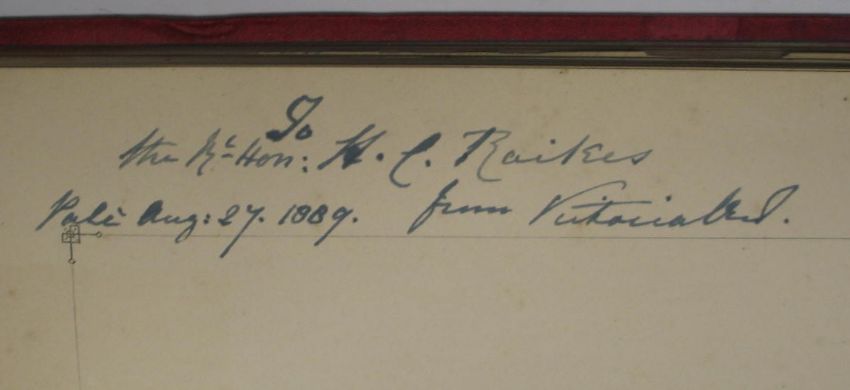 To
the Rt. Hon: H. C. Raikes
Palé Aug: 27. 1889. from Victoria R&I.